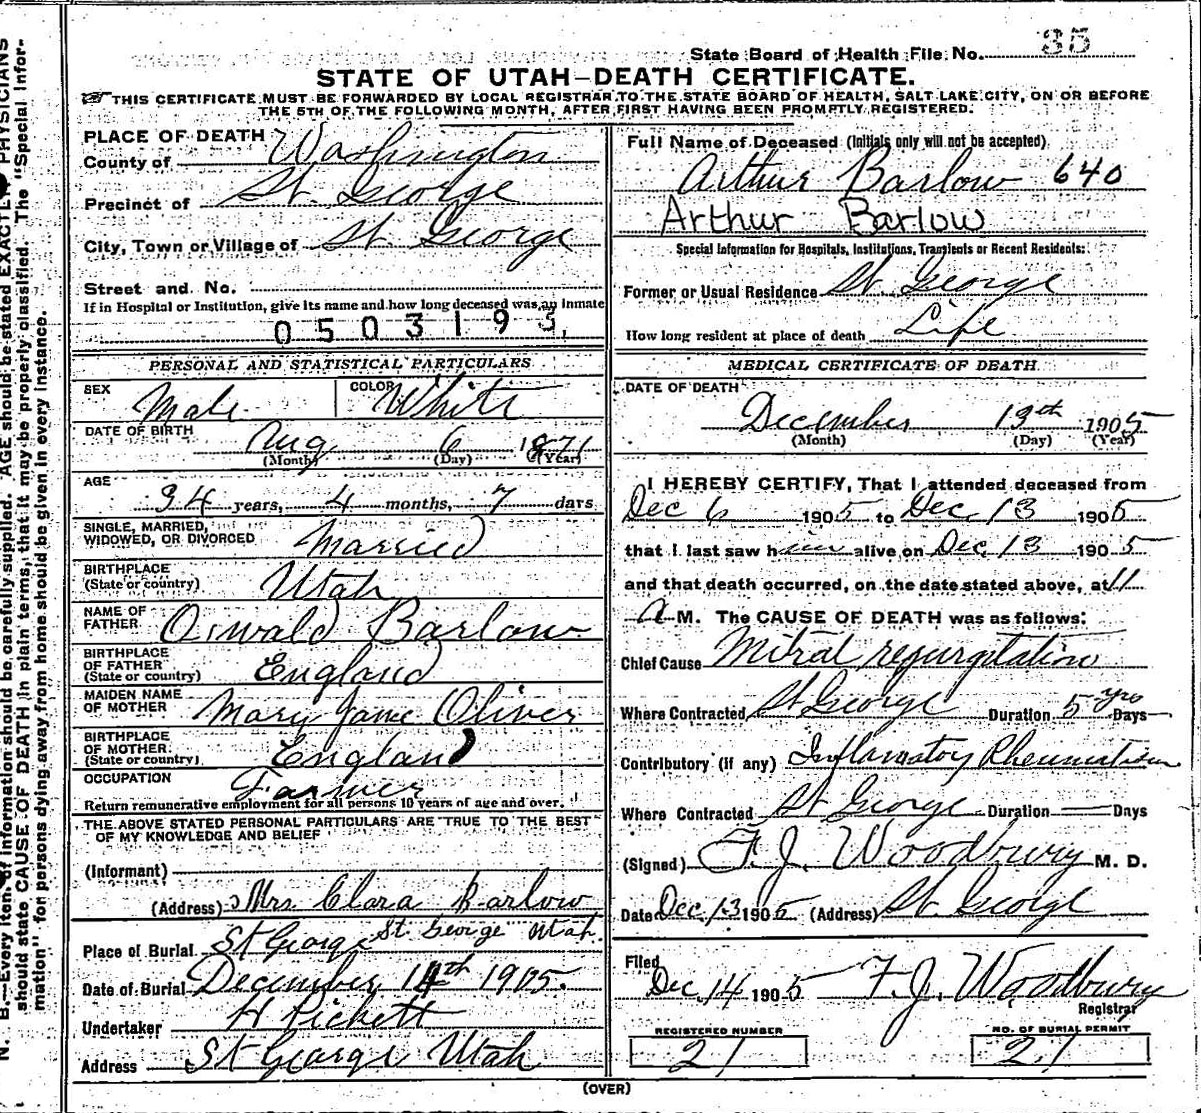 State Board of Health File No. 35
STATE OF UTAH—DEATH CERTIFICATE.
THIS CERTIFICATE MUST BE FORWARDED BY LOCAL REGISTRAR TO THE STATE BOARD OF HEALTH, SALT LAKE CITY, ON OR BEFORE
THE 5TH OF THE FOLLOWING MONTH, AFTER FIRST HAVING BEEN PROMPTLY REGISTERED.
PLACE OF DEATH
County of Washington
Precinct of St. George
City, Town or Village of St George
Street and No.
If in Hospital or Institution, give its name and how long deceased was an Inmate
0503193
PERSONAL AND STATISTICAL PARTICULARS
SEX Male COLOR White
DATE OF BIRTH Aug 6 1871
(Month) (Day) (Year)
AGE
34 years, 4 months, 7 days
SINGLE, MARRIED,
WIDOWED, OR DIVORCED Married
BIRTHPLACE
(State or country) Utah
NAME OF
FATHER Oswald Barlow
BIRTHPLACE
OF FATHER
(State or country) England
MAIDEN NAME
OF MOTHER Mary Jane Oliver
BIRTHPLACE
OF MOTHER
(State or country) England
OCCUPATION Farmer
Return remunerative employment for all persons 10 years of age and over.
THE ABOVE STATED PERSONAL PARTICULARS ARE TRUE TO THE BEST
OF MY KNOWLEDGE AND BELIEF
(Informant)
(Address) Mrs. Clara Barlow
St. George Utah.
Place of Burial St George
Date of Burial December 14th 1905.
Undertaker H Pickett
Address St George Utah
Full Name of Deceased (Initials only will not be accepted)
Arthur Barlow 640
Arthur Barlow
Special Information for Hospitals, Institutions, Transients or Recent Residents:
Former or Usual Residence St. George
How long resident at place of death Life
MEDICAL CERTIFICATE OF DEATH
DATE OF DEATH
December 13th 1905
(Month) (Day) (Year)
I HEREBY CERTIFY, That I attended deceased from
Dec 6 1905 to Dec. 13 1905
that I last saw him alive on Dec. 13 1905
and that death occurred, on the date stated above, at 11
A M. The CAUSE OF DEATH was as follows:
Chief Cause Mitral regurgitation
Where Contracted St George Duration 5 yrs Days
Contributory (if any) Inflamatory Rheumatism
Where Contracted St George Duration Days
(Signed) F. J. Woodbury M. D.
Date Dec. 13 1905 (Address) St. George
Filed
Dec. 14 1905 F. J. Woodbury
Registrar
REGISTERED NUMBER NO. OF BURIAL PERMIT
21 21
(OVER)
N. B.—Every item of information should be carefully supplied. AGE should be stated EXACTLY. PHYSICIANS
should state CAUSE OF DEATH in plain terms, that it may be properly classified. The "Special Infor-
mation" for persons dying away from home should be given in every instance.